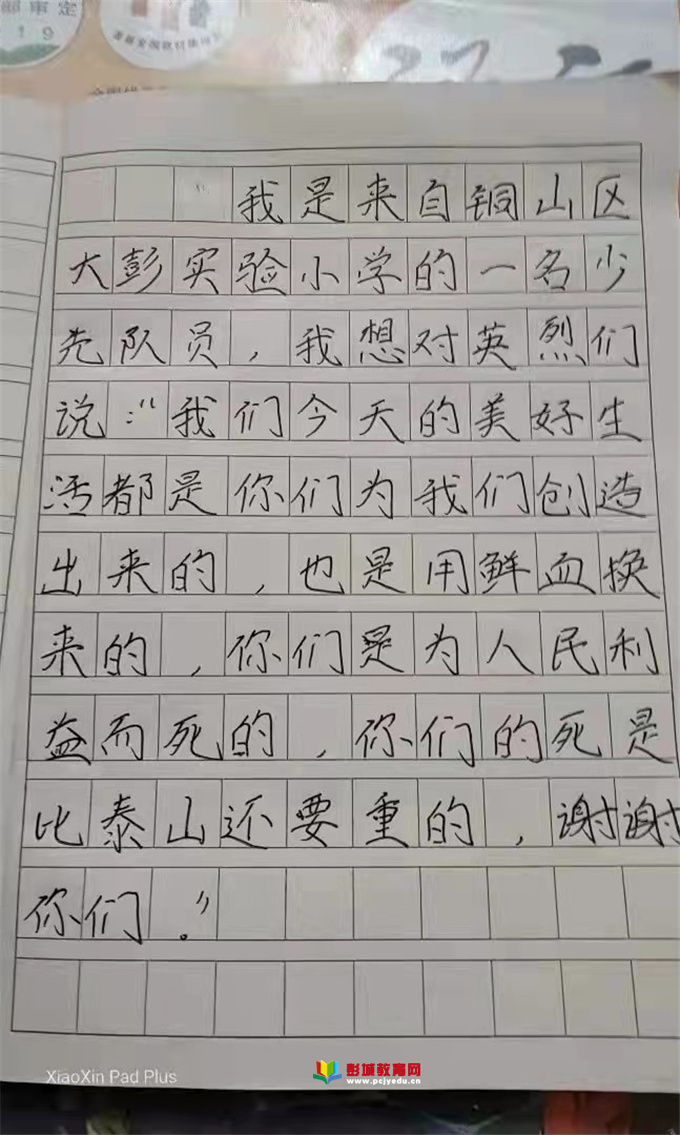 部审定
19
“我是来自铜山区
大彭实验小学的一名少
先队员,我想对英烈们
说:“我们今天的美好生
活都是你们为我们创造
出来的,也是用鲜血换
来的,你们是为人民利
益而死的,你们的死是
比泰山还要重的,谢谢
你们。”
XiaoXin Pad Plus
彭城教育网
www.pcjyedu.cn